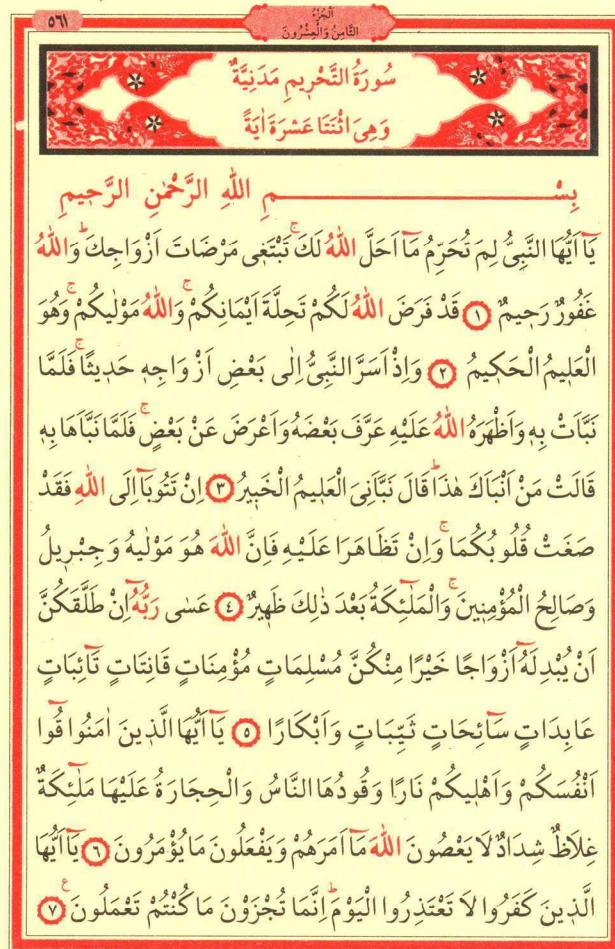 ٥٦١
اَلْجُزْءُ
الثَّامِنُ وَالْعِشْرُونَ
سُورَةُ التَّحْر۪يمِ مَدَنِيَّةٌ
وَهِىَ اثْنَتَا عَشْرَةَ اٰيَةً
بِسْــــــــمِ اللهِ الرَّحْمٰنِ الرَّح۪يمِ
يَٓا اَيُّهَا النَّبِيُّ لِمَ تُحَرِّمُ مَٓا اَحَلَّ اللّٰهُ لَكَۚ تَبْتَغ۪ى مَرْضَاتَ اَزْوَاجِكَۜ وَاللّٰهُ
غَفُورٌ رَح۪يمٌ ﴿١﴾ قَدْ فَرَضَ اللّٰهُ لَكُمْ تَحِلَّةَ اَيْمَانِكُمْۚ وَاللّٰهُ مَوْلٰيكُمْۚ وَهُوَ
الْعَل۪يمُ الْحَك۪يمُ ﴿٢﴾ وَاِذْ اَسَرَّ النَّبِيُّ اِلٰى بَعْضِ اَزْوَاجِه۪ حَد۪يثًاۚ فَلَمَّا
نَبَّاَتْ بِه۪ وَاَظْهَرَهُ اللّٰهُ عَلَيْهِ عَرَّفَ بَعْضَهُ وَاَعْرَضَ عَنْ بَعْضٍۚ فَلَمَّا نَبَّاَهَا بِه۪
قَالَتْ مَنْ اَنْبَاَكَ هٰذَاۜ قَالَ نَبَّاَنِىَ الْعَل۪يمُ الْخَب۪يرُ ﴿٣﴾ اِنْ تَتُوبَٓا اِلَى اللّٰهِ فَقَدْ
صَغَتْ قُلُوبُكُمَاۚ وَاِنْ تَظَاهَرَا عَلَيْهِ فَاِنَّ اللّٰهَ هُوَ مَوْلٰيهُ وَجِبْر۪يلُ
وَصَالِحُ الْمُؤْمِن۪ينَۚ وَالْمَلٰٓئِكَةُ بَعْدَ ذٰلِكَ ظَه۪يرٌ ﴿٤﴾ عَسٰى رَبُّهُٓ اِنْ طَلَّقَكُنَّ
اَنْ يُبْدِلَهُٓ اَزْوَاجًا خَيْرًا مِنْكُنَّ مُسْلِمَاتٍ مُؤْمِنَاتٍ قَانِتَاتٍ تَٓائِبَاتٍ
عَابِدَاتٍ سَٓائِحَاتٍ ثَيِّبَاتٍ وَاَبْكَارًا ﴿٥﴾ يَٓا اَيُّهَا الَّذ۪ينَ اٰمَنُوا قُٓوا
اَنْفُسَكُمْ وَاَهْل۪يكُمْ نَارًا وَقُودُهَا النَّاسُ وَالْحِجَارَةُ عَلَيْهَا مَلٰٓئِكَةٌ
غِلَاظٌ شِدَادٌ لَا يَعْصُونَ اللّٰهَ مَٓا اَمَرَهُمْ وَيَفْعَلُونَ مَا يُؤْمَرُونَ ﴿٦﴾ يَٓا اَيُّهَا
الَّذ۪ينَ كَفَرُوا لَا تَعْتَذِرُوا الْيَوْمَۜ اِنَّمَا تُجْزَوْنَ مَا كُنْتُمْ تَعْمَلُونَ۟ ﴿٧﴾